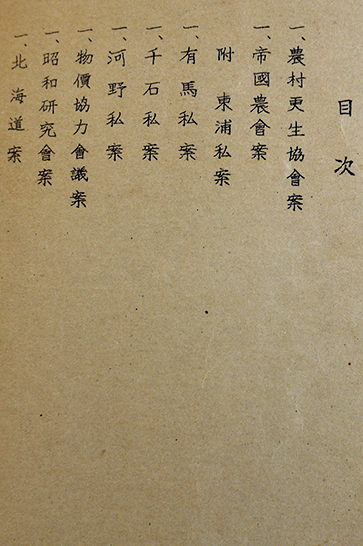 目次
一、農村更生協會案
一、帝國農會案
附 東浦私案
一、有馬私案
一、千石私案
一、河野私案
一、物價協力會議案
一、昭和研究會案
一、北海道案